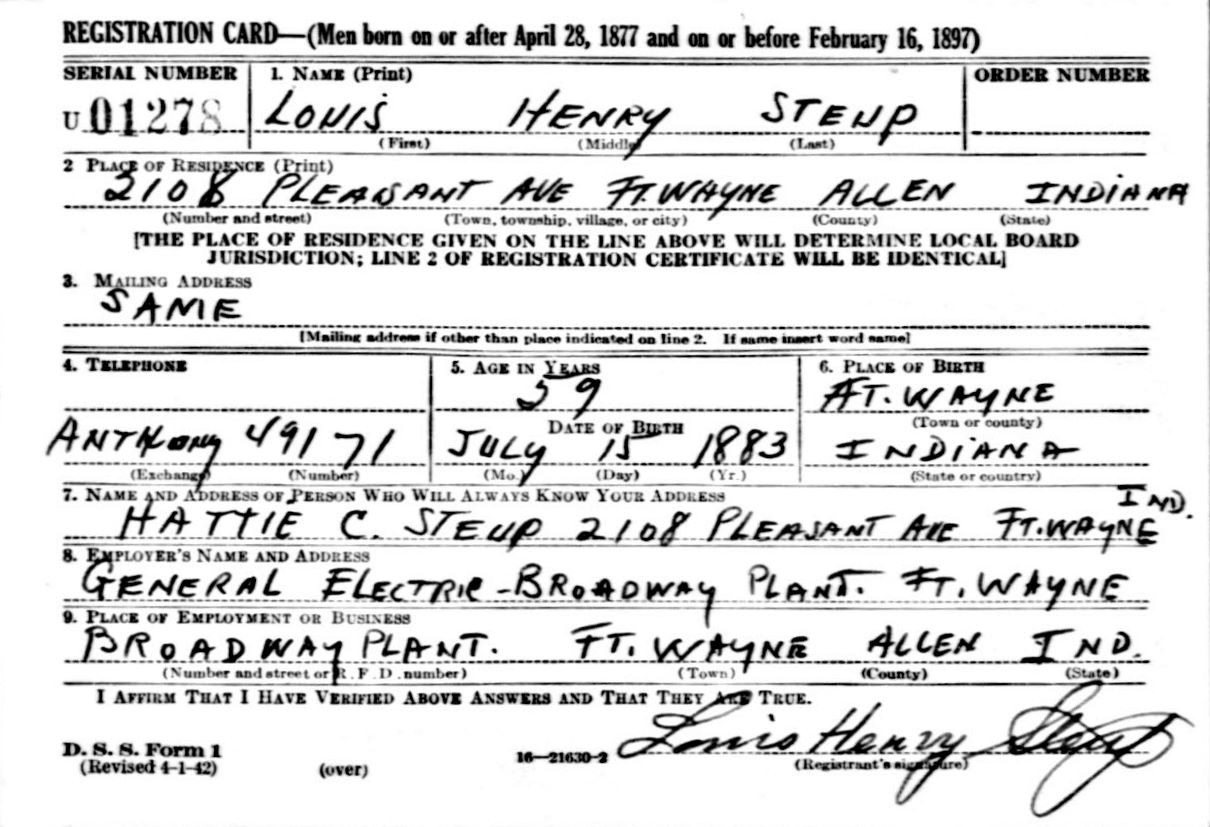 REGISTRATION CARD—(Men born on or after April 28, 1877 and on or before February 16, 1897)
SERIAL NUMBER 1. NAME (Print) ORDER NUMBER
U 01278 LOUIS HENRY STEUP
(First) (Middle) (Last)
2 PLACE OF RESIDENCE (Print)
2108 PLEASANT AVE FT. WAYNE ALLEN INDIANA
(Number and street) (Town, township, village, or city) (County) (State)
[THE PLACE OF RESIDENCE GIVEN ON THE LINE ABOVE WILL DETERMINE LOCAL BOARD
JURISDICTION; LINE 2 OF REGISTRATION CERTIFICATE WILL BE IDENTICAL]
3. MAILING ADDRESS
SAME
[Mailing address if other than place indicated on line 2. If same insert word same]
4. TELEPHONE 5. AGE IN YEARS 6. PLACE OF BIRTH
59 FT. WAYNE
DATE OF BIRTH (Town or county)
ANTHONY 49171 JULY 15 1883 INDIANA
(Exchange) (Number) (Mo.) (Day) (Yr.) (State or country)
7. NAME AND ADDRESS OF PERSON WHO WILL ALWAYS KNOW YOUR ADDRESS IND.
HATTIE C. STEUP 2108 PLEASANT AVE FT. WAYNE
8. EMPLOYER'S NAME AND ADDRESS
GENERAL ELECTRIC - BROADWAY PLANT. FT. WAYNE
9. PLACE OF EMPLOYMENT OR BUSINESS
BROADWAY PLANT. FT. WAYNE ALLEN IND.
(Number and street or R. F. D. number) (Town) (County) (State)
I AFFIRM THAT I HAVE VERIFIED ABOVE ANSWERS AND THAT THEY ARE TRUE.
Louis Henry Steup
D. S. S. Form 1 16—21630-2
(Revised 4-1-42) (over) (Registrant's signature)